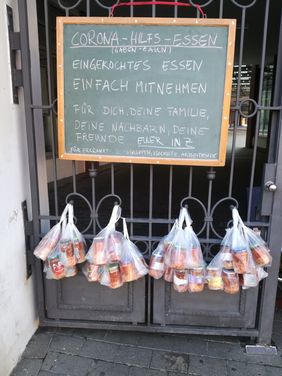 CORONA-HILFS-ESSEN
(GABEN-ZAUN)
EINGEKOCHTES ESSEN
EINFACH MITNEHMEN
FÜR DICH, DEINE FAMILIE,
DEINE NACHBARN, DEINE
FREUNDE
FÜR